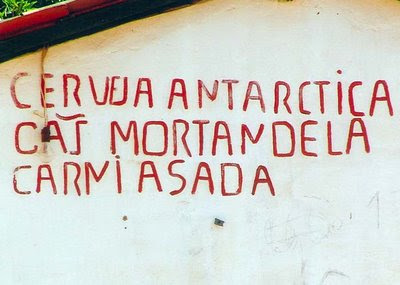 CERVEJA ANTARCTICA
CAS̃ MORTANDELA
CARMI ASADA